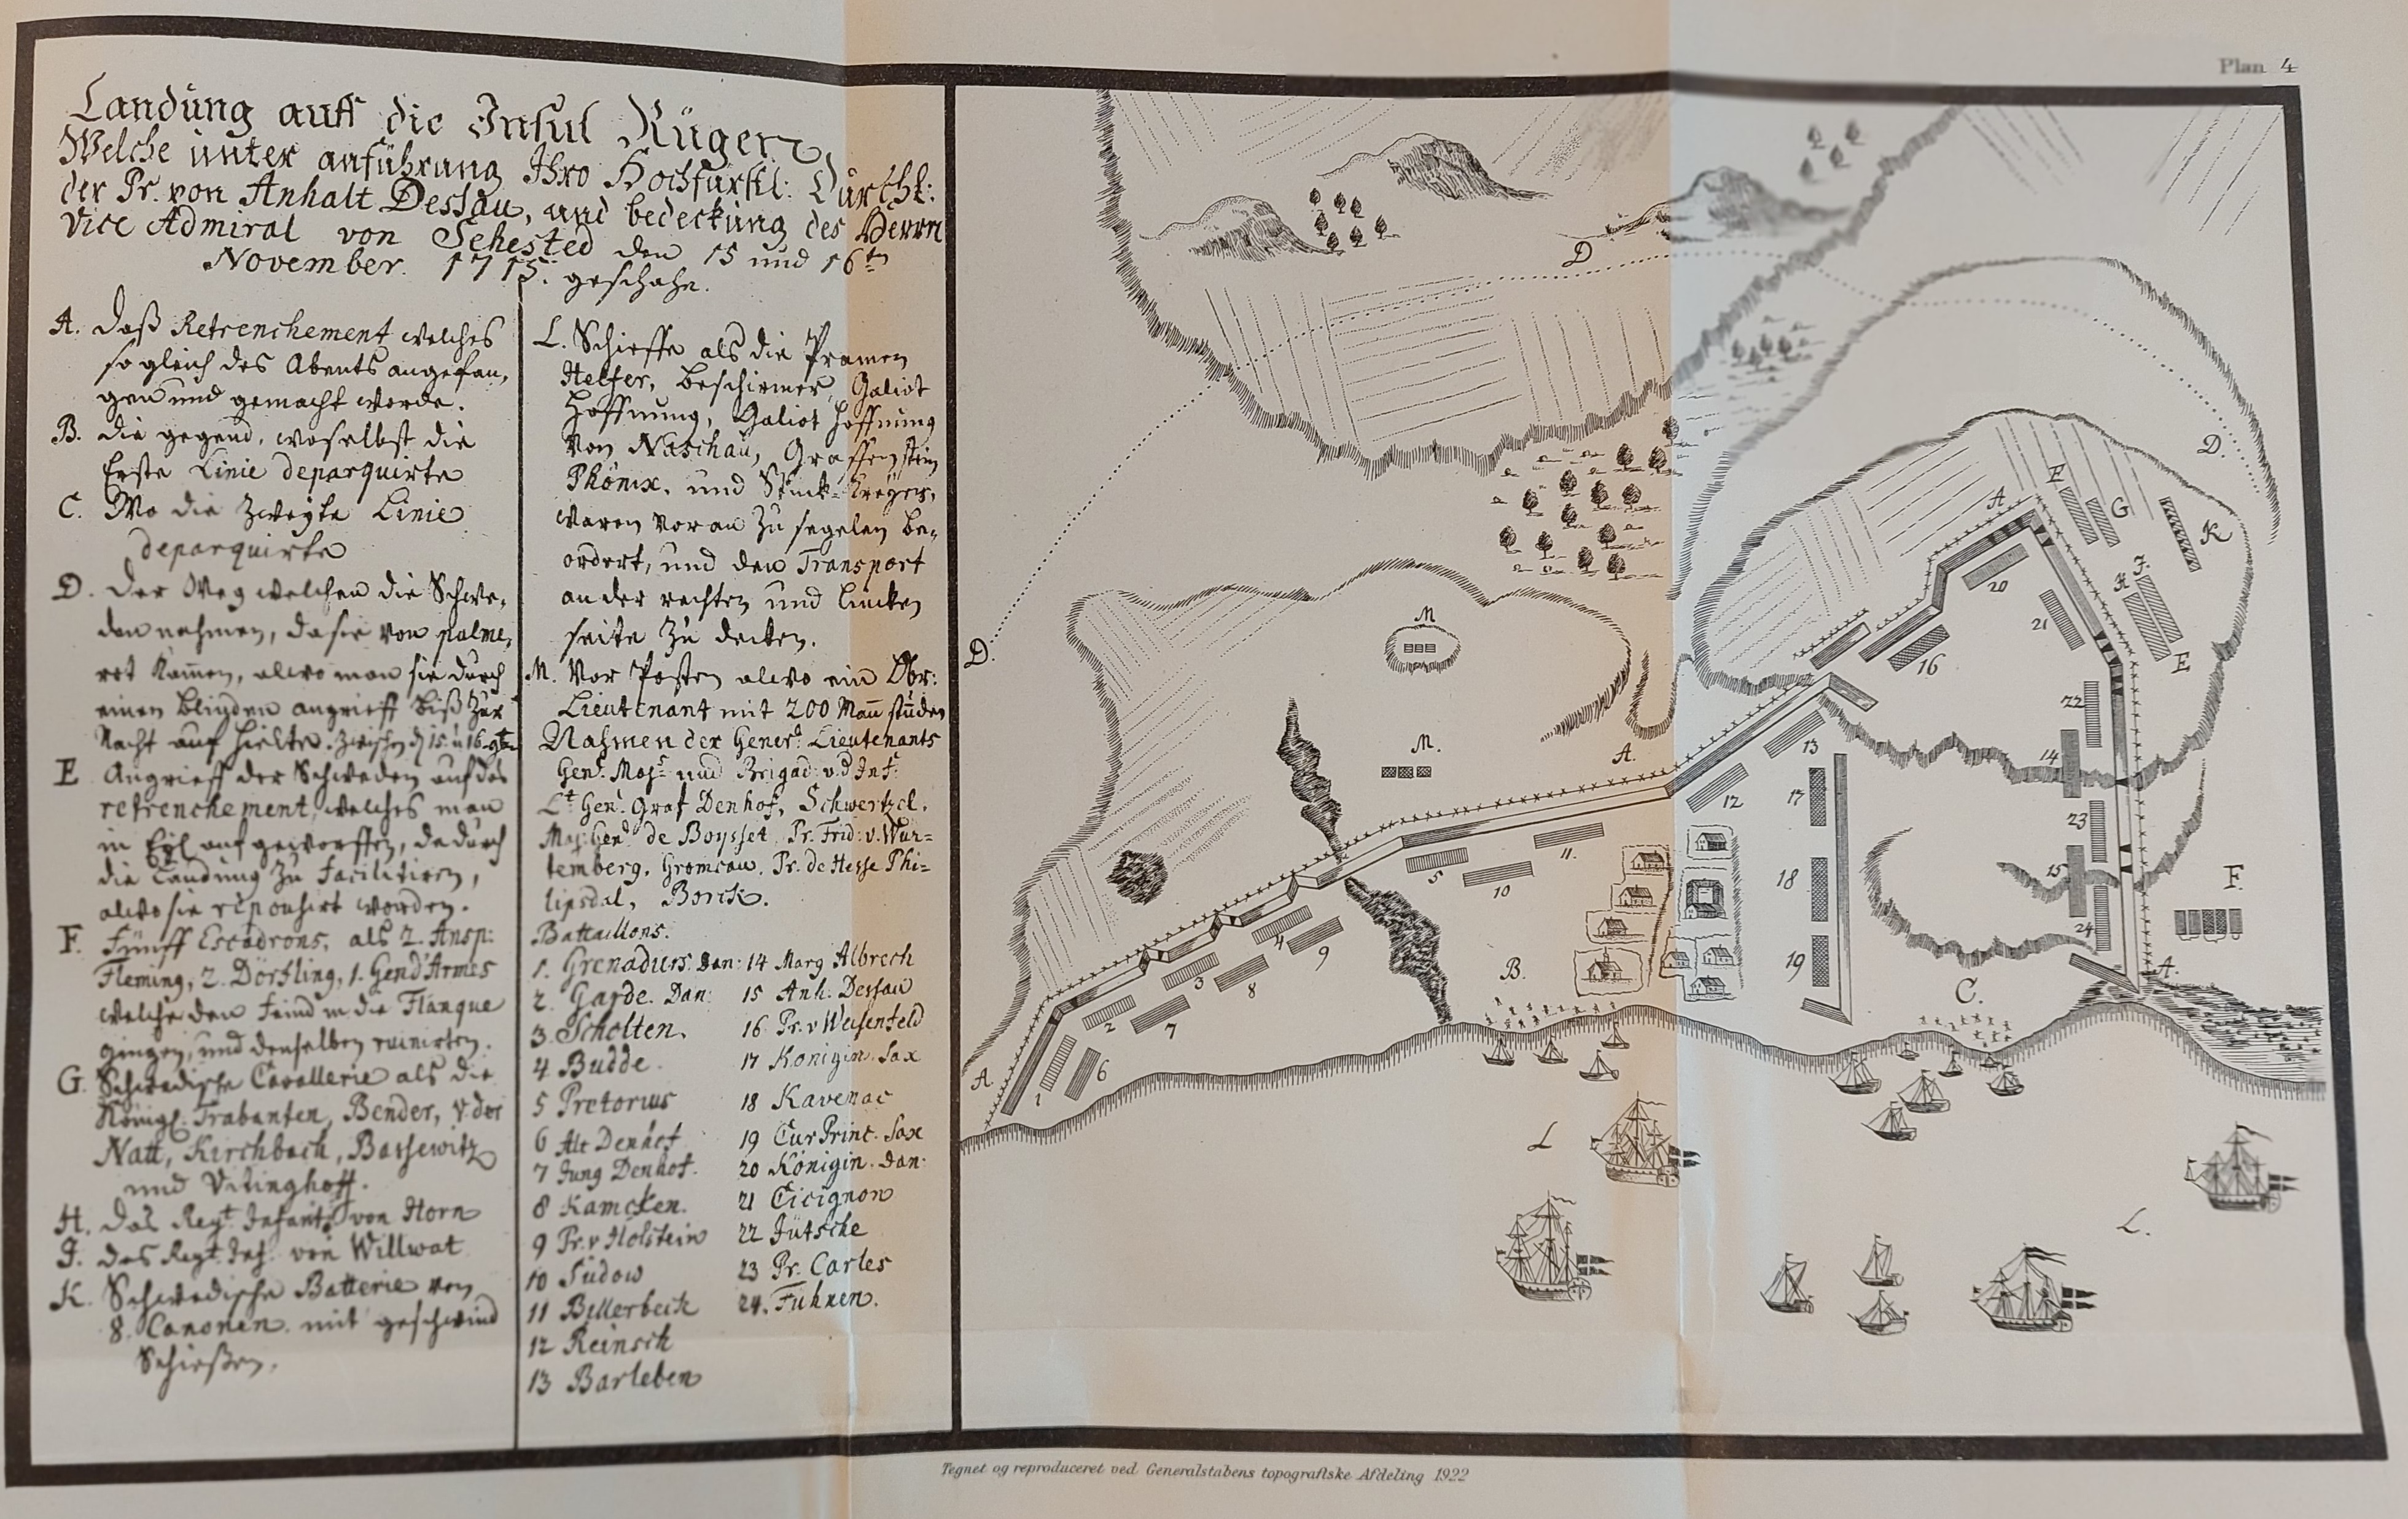 Plan 4
Landung auff die Insul Rügen,
Welche unter anführung Ihro Hochfürstl: Durchl:
der Pr. von Anhalt Dessau, und bedeckung des Herrn
Vice Admiral von Sehested den 15 und 16ten
November. 1715. geschahe.
A. Daß Retrenchement welches
so gleich des Abents angefan,
gen und gemacht worde.
B. die gegend, woselbst die
Erste Linie deparquirte
C. Wo die Zweyte Linie
deparquirte
D. Der Weg welchen die Schwe,
den nahmen, da sie von palme,
rot kamen, alwo man sie durch
einen blinden angrieff biß Zur
Nacht auf hielte. Zwischen 15. u 16
E Angrieff der Schweden auf das
retrenchement, welches man
in Eyl aufgeworffen, dadurch
die Landung Zu facilitiren,
alwo sie repousirt worden.
F. Fünff Escadrons, als 2. Ansp:
Fleming, 2. Dörfling, 1. Gend'Armes
welche den feind in die Flanque
gingen, und denselben ruinirten.
G. Schwedische Cavallerie als die
Königl. Trabanten, Bender, v. der
Natt, Kirchbach, Bassewitz
und Vitinghoff.
H. das Regt. Infant. von Horn
J. das Regt. Inf. von Willwat
K. Schwedische Batterie von
8. Canonen mit geschwind
Schießen.
L. Schieffe als die Pramen
Helfer, Beschirmer, Galiot
Hoffnung, Galiot Hoffnung
von Naschau, Graffenstein
Phönix, und Stück-
waren vor an Zu segelen be,
ordert, und den Transport
an der rechten und lincken
seite Zu decken.
M. Vor Posten alwo ein Obr:
Lieutenant mit 200 Mann stunden
Nahmen der Generl. Lieutenants
Genl. Majr. und Brigad: v. d Inf:
Lt Genl. Graf Denhof, Schwertzel.
Maj: Genl de Boysset, Pr. Frid: v. Wur-
temberg, Gromcau, Pr. de Hesse Phi-
lipsdal, Borck.
Battaillons.
1. Grenadiers. Dan:
2. Garde. Dan:
3 Scholten.
4 Budde.
5 Pretorius
6 Alt Denhof
7 Jung Denhof.
8 Kamcken.
9 Pr. v Holstein
10 Südow
11 Billerbeck
12 Reinsch
13 Barleben
14 Marg Albrech
15 Anh. Dessau
16 Pr. v Weisenfeld
17 Konigin. Sax
18 Kavenac
19 Cur Princ. Sax
20 Königin. Dan:
21 Cicignon
22 Jütsche
23 Pr. Carles
24. Fühnen.
D
D.
D.
E
A
G
K
20
J.
H
21
M
E
16
22
M.
A.
13
14
17
12
23
11.
5
10
15
18
F.
4
9
24
3
8
B.
19
A.
C.
2
7
A.
1
6
L
L.
Tegnet og reproduceret ved Generalstabens topografiske Afdeling 1922